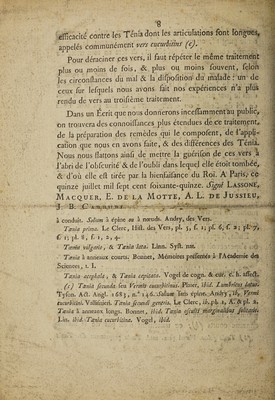 8
efficacité contre les Ténia dont les articulations sont longues,
appelés communément vers cucurbitins (c).
Pour déraciner ces vers, il faut répéter le même traitement
plus ou moins de fois, & plus ou moins souvent, selon
les circonstances du mal & la disposition du malade: un de
ceux sur lesquels nous avons fait nos expériences n'a plus
rendu de vers au troisième traitement.
Dans un Écrit que nous donnerons incessamment au public,
on trouvera des connoissances plus étendues de ce traitement,
de la préparation des remèdes qui le composent, de l'appli-
cation que nous en avons faite, & des différences des Ténia.
Nous nous flattons ainsi de mettre la guérison de ces vers à
l'abri de l'obscurité & de l'oubli dans lequel elle étoit tombée,
& d'où elle est tirée par la bienfaisance du Roi. A Paris, ce
quinze juillet mil sept cent soixante-quinze. Signé LASSONE,
MACQUER, E. DE LA MOTTE, A. L. DE JUSSIEU,
J. B.
à conduit. Solium à épine ou à nœuds. Andry, des Vers.
Tænia prima. Le Clerc, Hist. des Vers, pl. 5, f. 1; pl. 6, f. 2; pl. 7,
f. 1; pl. 8, f. 1, 2, 4.
Tænia vulgaris, & Tænia lata. Linn. Syst. nat.
Tænia à anneaux courts. Bonnet, Mémoires présentés à l'Académie des
Sciences, t. I.
Tænia acephala, & Tænia capitata. Vogel de cogn. & cur. c. h. affect.
(c) Tænia secunda seu Vermis cucurbitinus. Plater, ibid. Lumbricus latus.
Tyson. Act. Angl. 1683, n.° 146. Solium sans épine. Andry, ib. Vermi
cucurbitini. Vallisnieri. Tænia secundi generis. Le Clerc, ib. pl. 2, A. & pl. 2.
Tænia à anneaux longs. Bonnet, ibid. Tænia osculis marginalibus solitariis.
Lin. ibid. Tænia cucurbitina. Vogel, ibid.